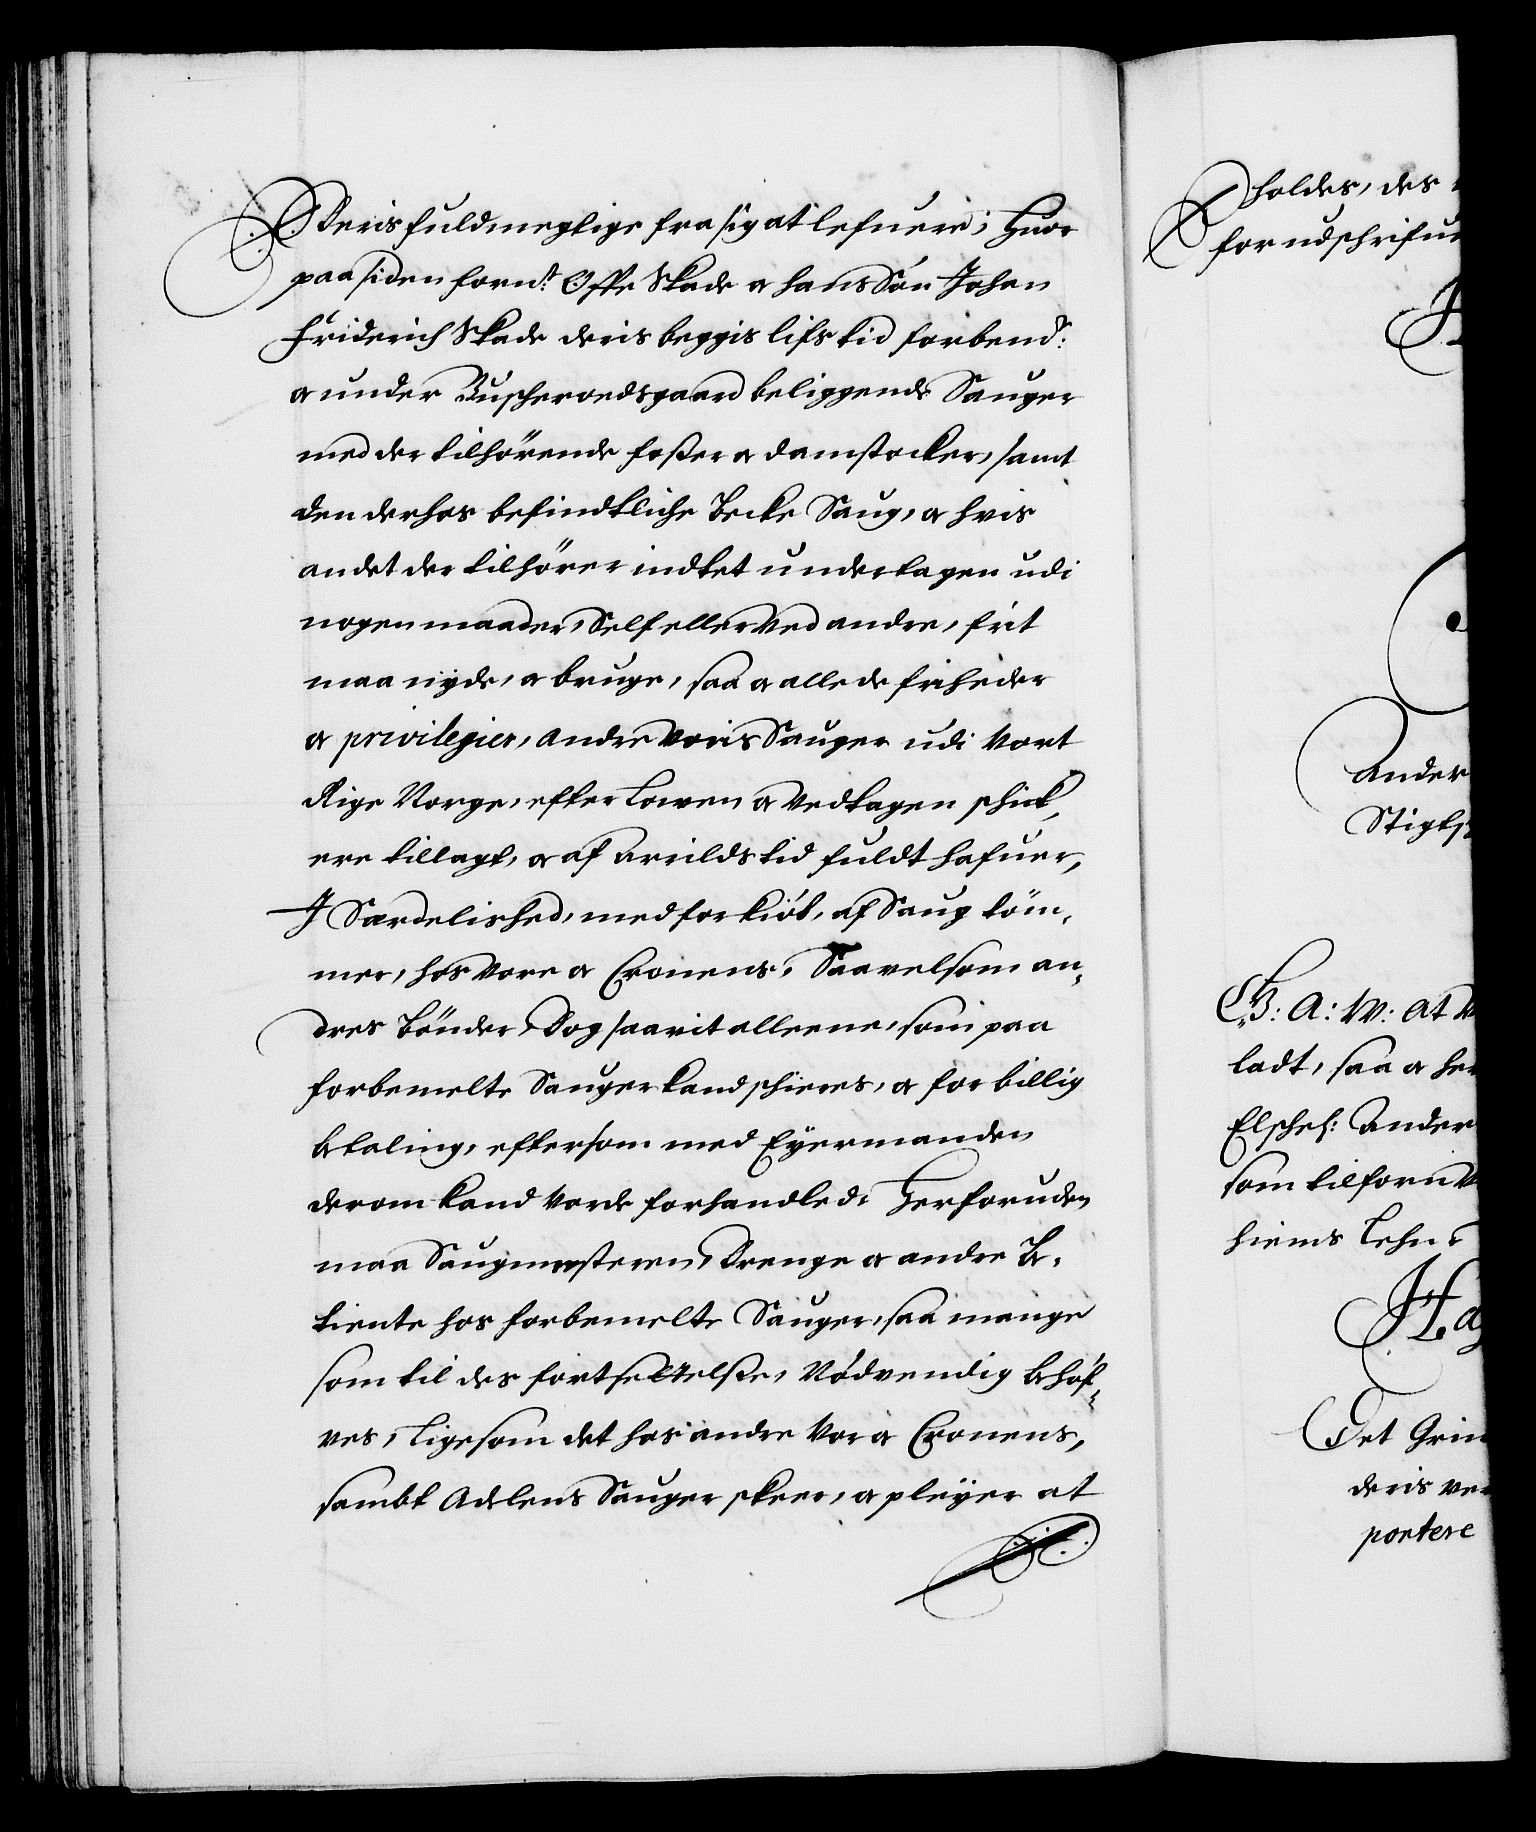 Deris fuldmegtige fra sig at lefuere; Huor
paa siden fornt: Offe Skade og hans Sön Johan
Friderich Skade deris beggis lifs tid forbend:
og under Buscheroedsgaard beliggende Sauger
med der tilhörende foßer og damstocker, samt
den derhos befindtliche Becke Saug, og hvis
andet der tilhörer indtet undertagen udi
nogen maader, Self eller ved andre, frit
maa nyde, og bruge, saa og alle de friheder
og privilegier, andre voris Sauger udi Vort
Rige Norge, efter Lowen og vedtagen schick,
ere tillagt, og af Arrilds tid fuldt hafuer,
J Særdelished, med forkiöb, af Saug töm,
mer, hos vore og Cronens, Saavelsom an,
dres bönder, Dog saavit alleene, som paa
forbemelte Sauger kand schieres, og for billig
betaling, eftersom med Eyermanden
derom kand vorde forhandled. Herforuden
maa Saugmesteren, Drenge og andre Be,
tiente hos forbemelte Sauger, saa mange
som til des fortsettelße, Nödvendig behöf,
ves, Ligesom det hos andre Vor og Cronens,
sambt Adelens Sauger skeer, og pleyer at
holdes, des
for udschrifue
Ander
Stigts
C.5: A: W: At
ladt, saa og her
Elschel: Ander
som tilforn
hiems Lehn
Det Grin
deris ver
portere